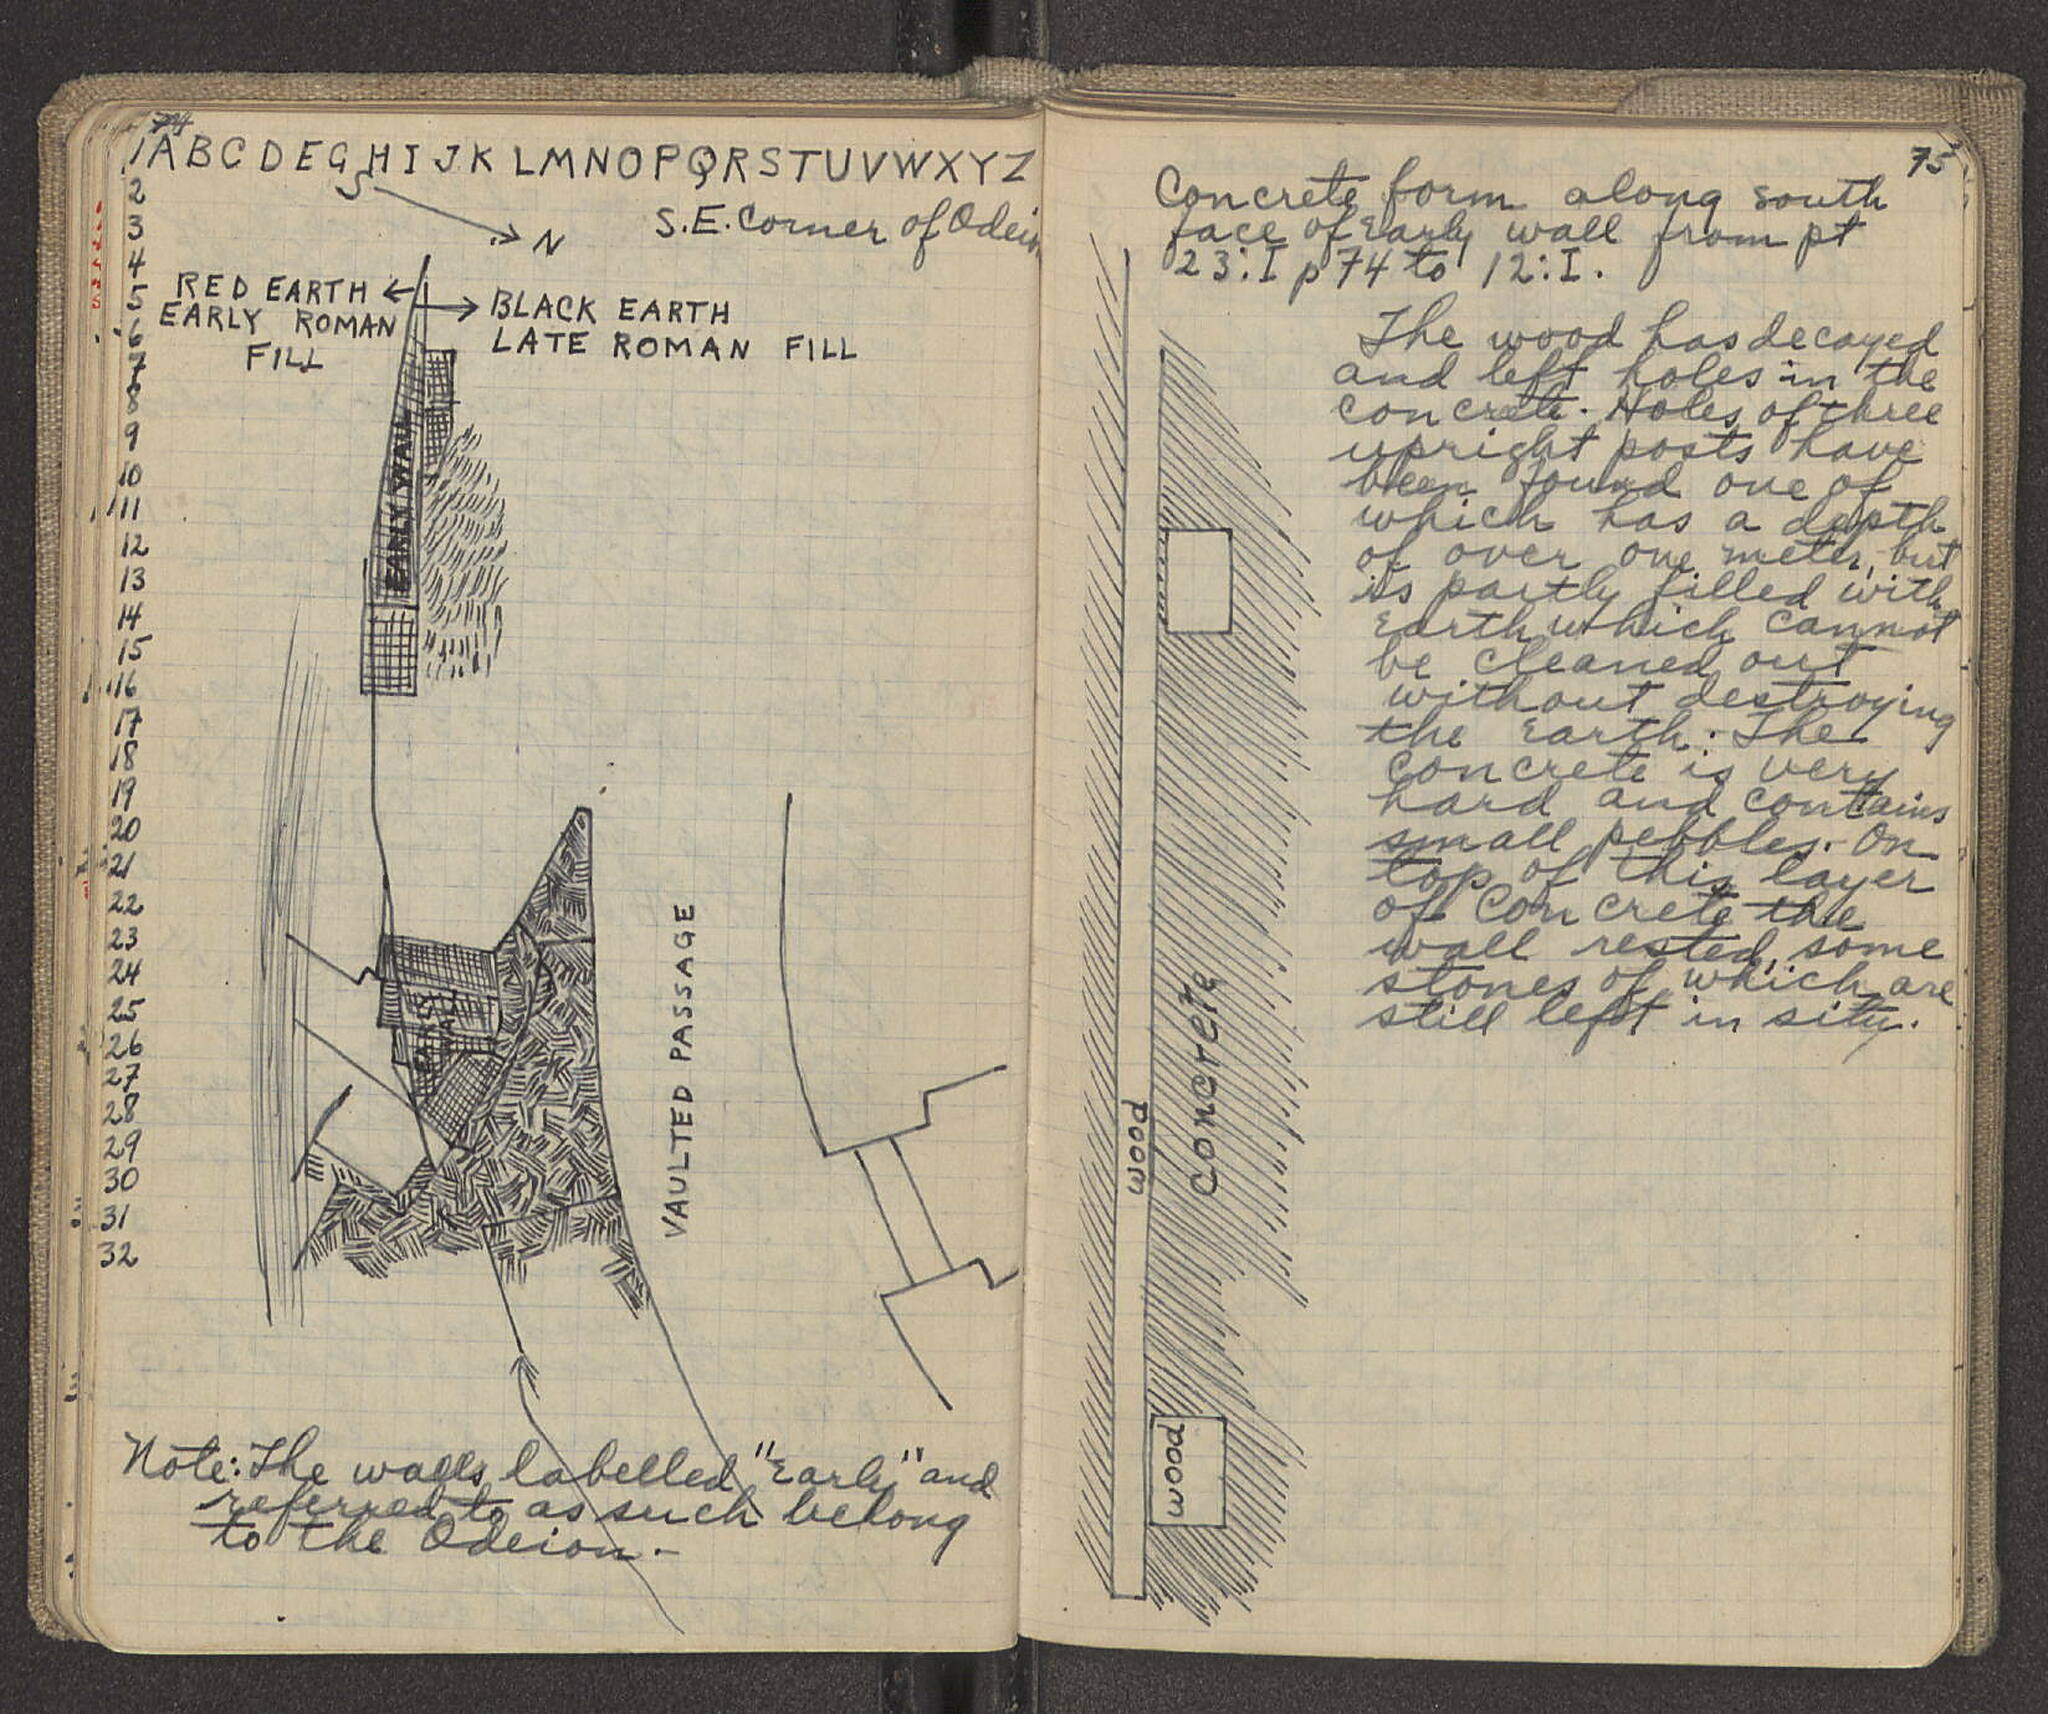 74
1 A B C D E G H I J K L M N O P Q R S T U V W X Y Z
2
3
4
5
6
7
8
9
10
11
12
13
14
15
16
17
18
19
20
21
22
23
24
25
26
27
28
29
30
31
32
S
N
S.E. Corner of Odeion
RED EARTH
EARLY ROMAN
FILL
BLACK EARTH
LATE ROMAN FILL
EARLY WALL
EARLY
WALL
VAULTED PASSAGE
Note: The walls labelled "Early" and
referred to as such belong
to the Odeion.-
75
Concrete form along south
face of Early wall from pt
23:I p 74 to 12:I.
The wood has decayed
and left holes in the
concrete. Holes of three
upright posts have
been found one of
which has a depth
of over one meter, but
is partly filled with
earth which cannot
be cleaned out
without destroying
the earth. The
concrete is very
hard and contains
small pebbles. On
top of this layer
of concrete the
wall rested, some
stones of which are
still left in situ.
wood
Concrete
wood